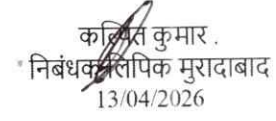 कल्पित कुमार .
निबंधक लिपिक मुरादाबाद
13/04/2026